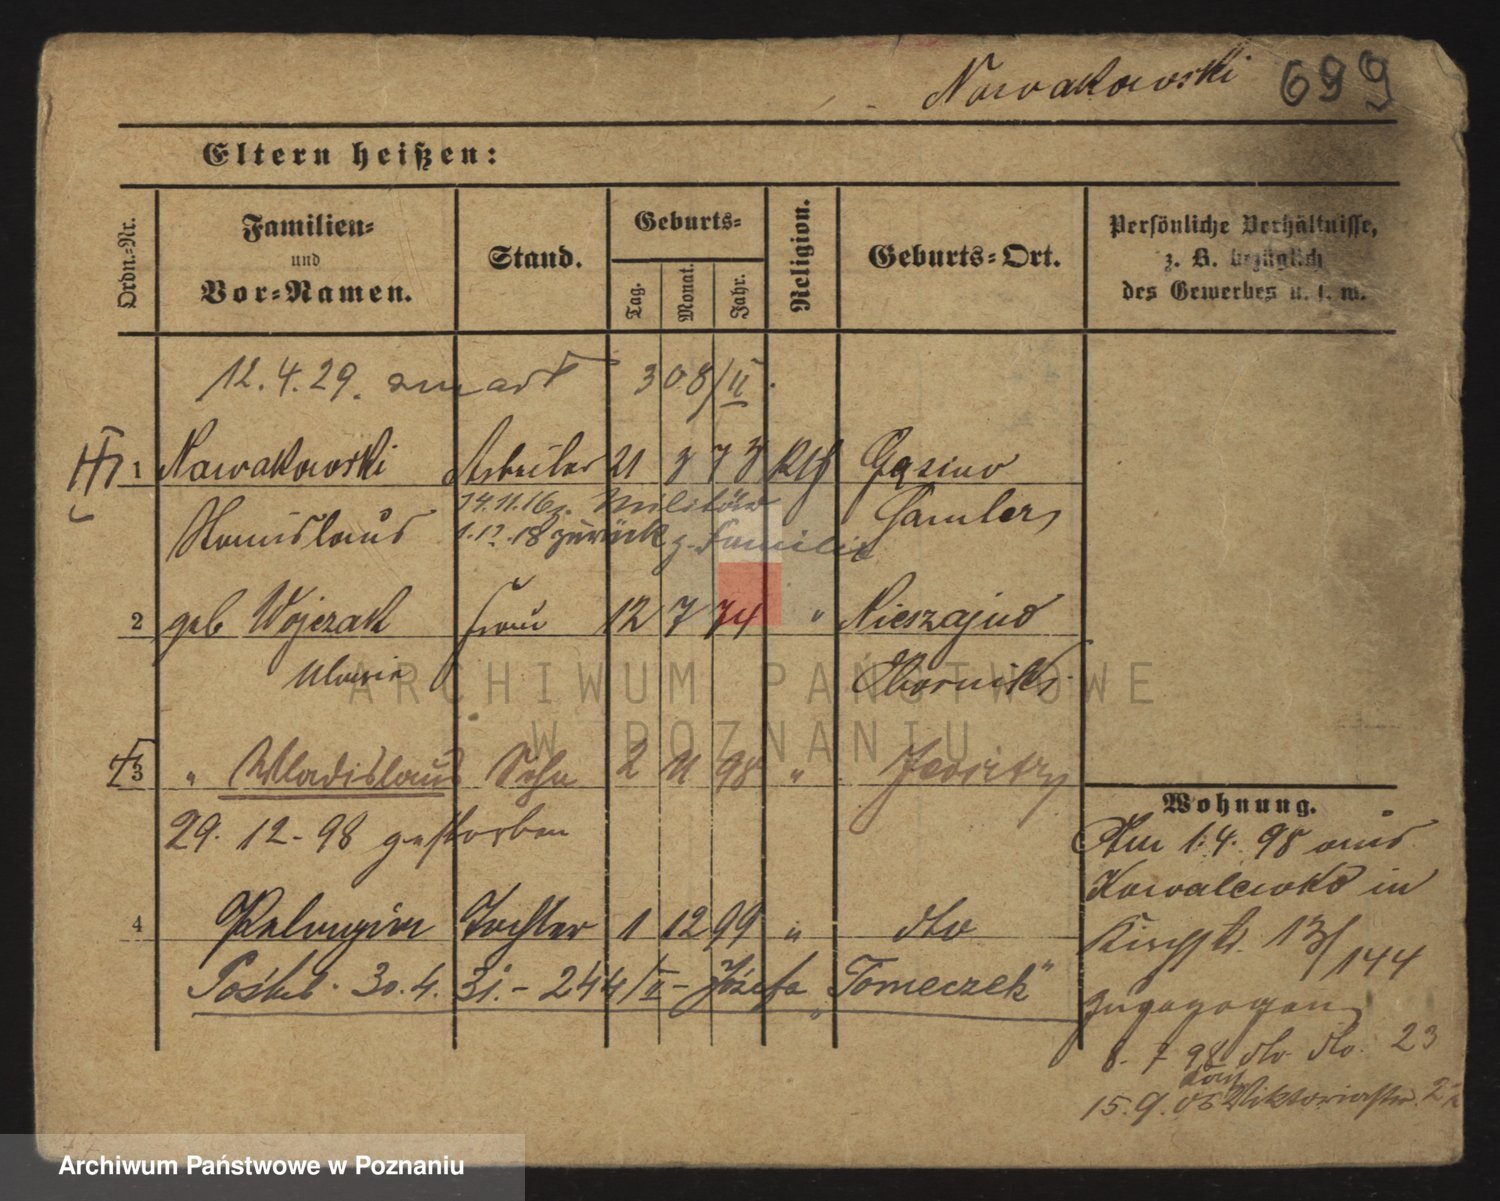 Nowakowski 699
Eltern heißen:
Ordn.-Nr.
Familien-
und
Vor-Namen.
Stand.
Geburts-
Tag. Monat. Jahr.
Religion.
Geburts-Ort.
Persönliche Verhältnisse,
z. B. bezüglich
des Gewerbes u. s. w.
12.4.29. 308/II.
1 Nowakowski Arbeiter 21 3 73 Kth
14.11.16 z. Militär
Stanislaus 1.12.18 zurück z. Familie
2 geb Wojczak Frau 12 7 74 "
Maria Obornik
ARCHIWUM PAŃSTWOWE
W POZNANIU
3 " Wladislaus Sohn 2 11 98 "
29.12-98 gestorben
4 Pelagia Tochter 1 12 99 " dto
30.4.31.-244/II- Józefa „Tomeczek"
Wohnung.
Am 1.4.98 aus
Kowalewko in
13/144
zugezogen
8.7 98 dto dto. 23
15.9.05 Viktoriastr.
Archiwum Państwowe w Poznaniu